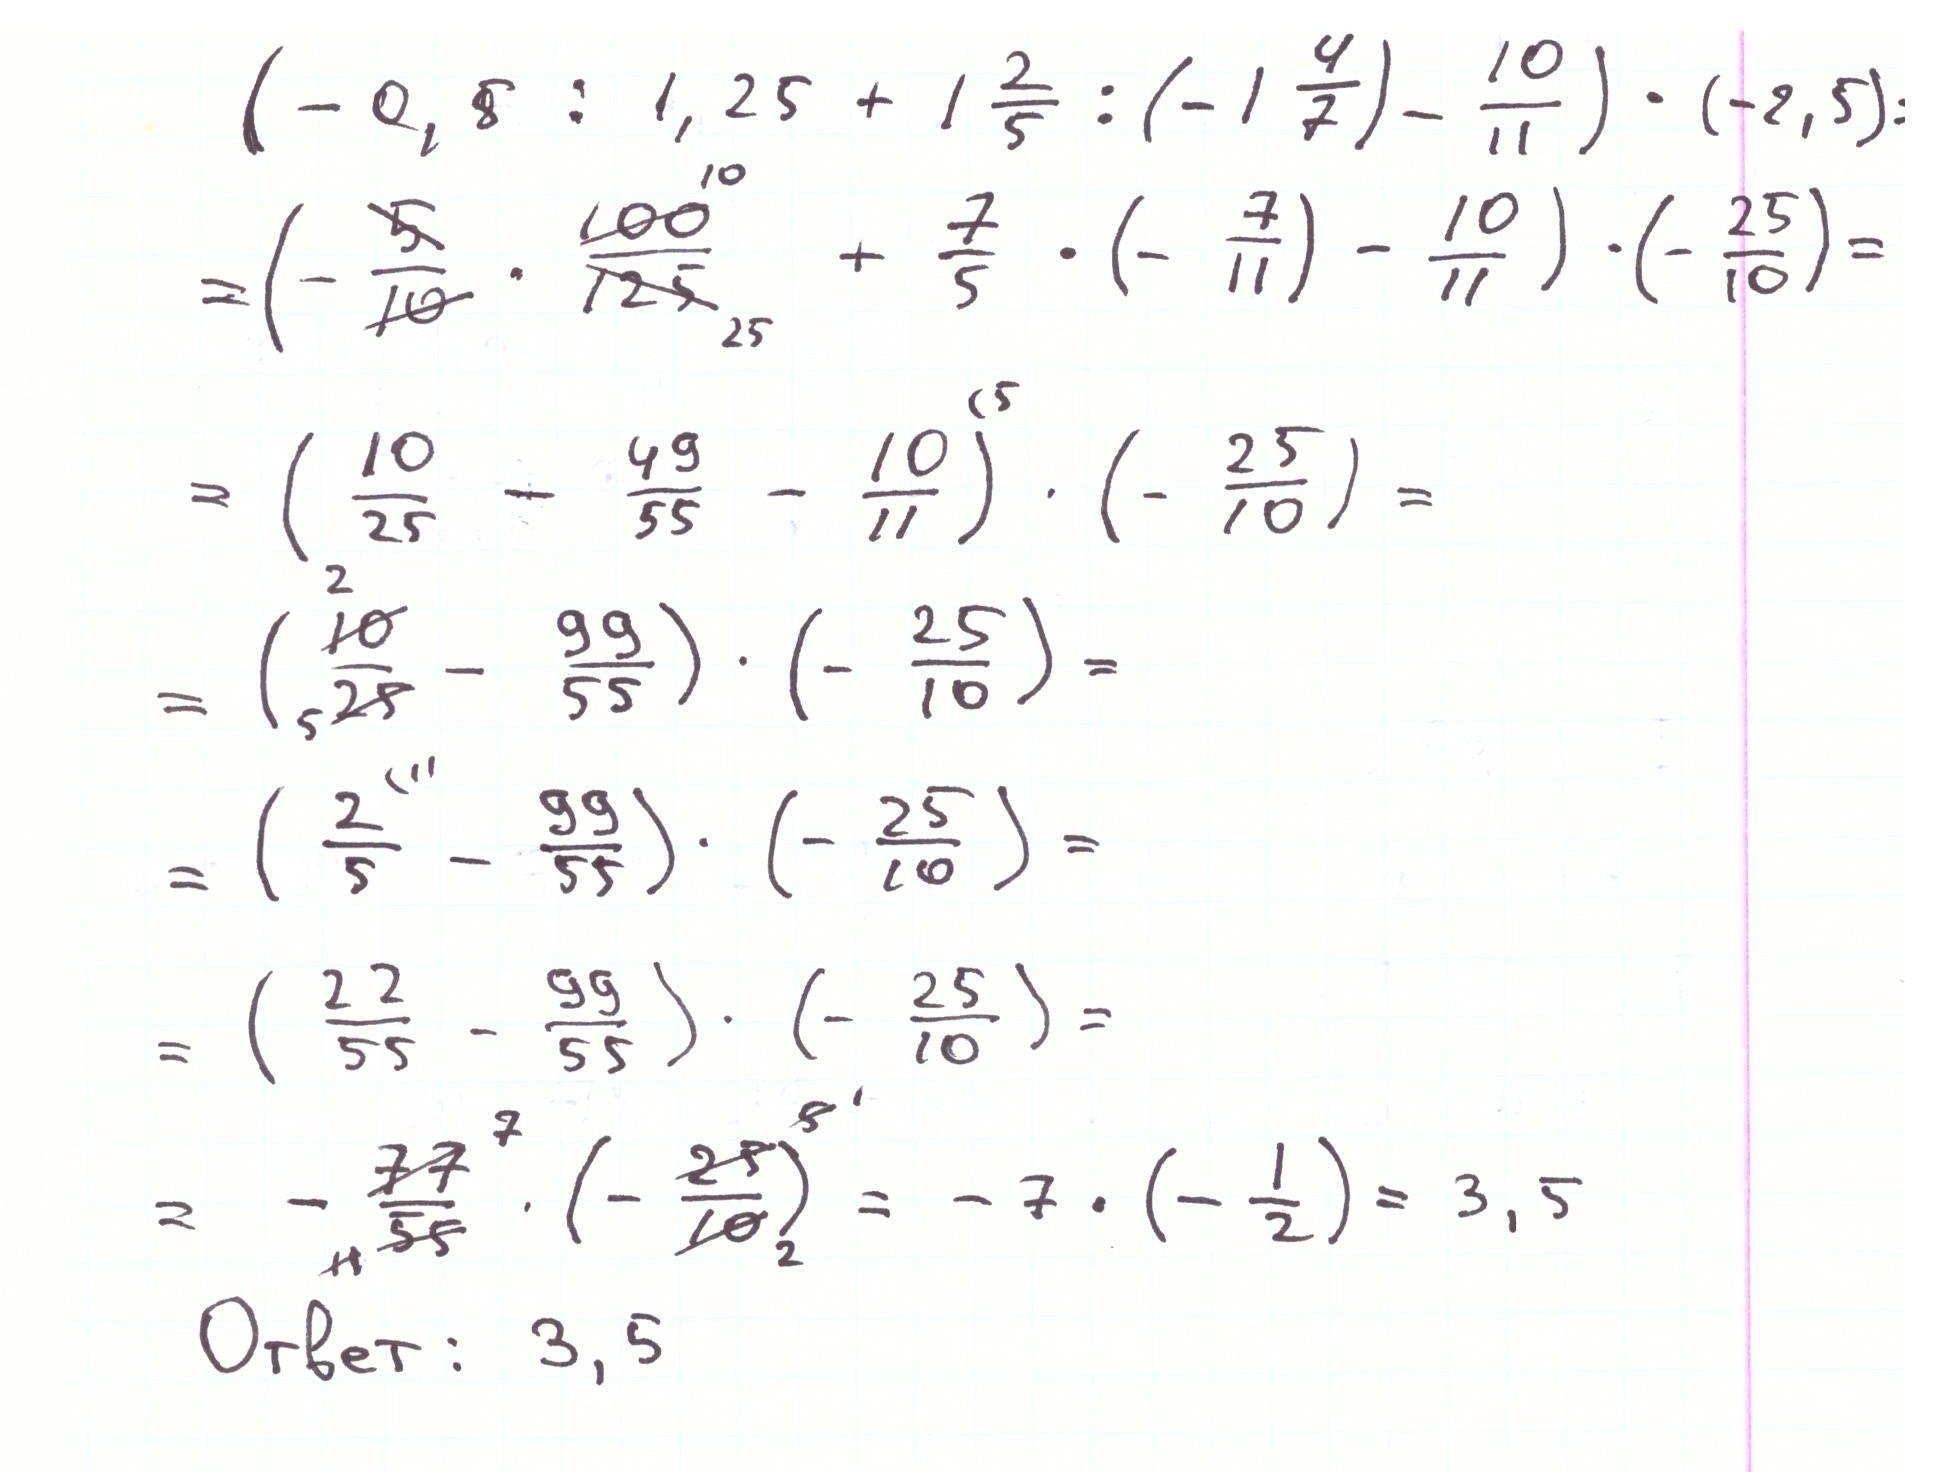 (-0,5 : 1,25 + 1 2/5 : (-1 4/7) - 10/11) · (-2,5) =
= (- 5/10 · 100/125 10 25 + 7/5 · (- 7/11) - 10/11) · (- 25/10) =
= (10/25 - 49/55 - 10/11 (5) · (- 25/10) =
= (2 10/25 5 - 99/55) · (- 25/10) =
= (2/5 (11 - 99/55) · (- 25/10) =
= (22/55 - 99/55) · (- 25/10) =
= - 77/55 7 11 · (- 25/10) 5 1 2 = -7 · (- 1/2) = 3,5
Ответ: 3,5